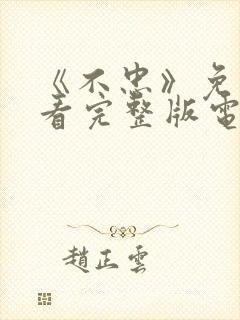 《不忠》免
看完整版電
趙正雲